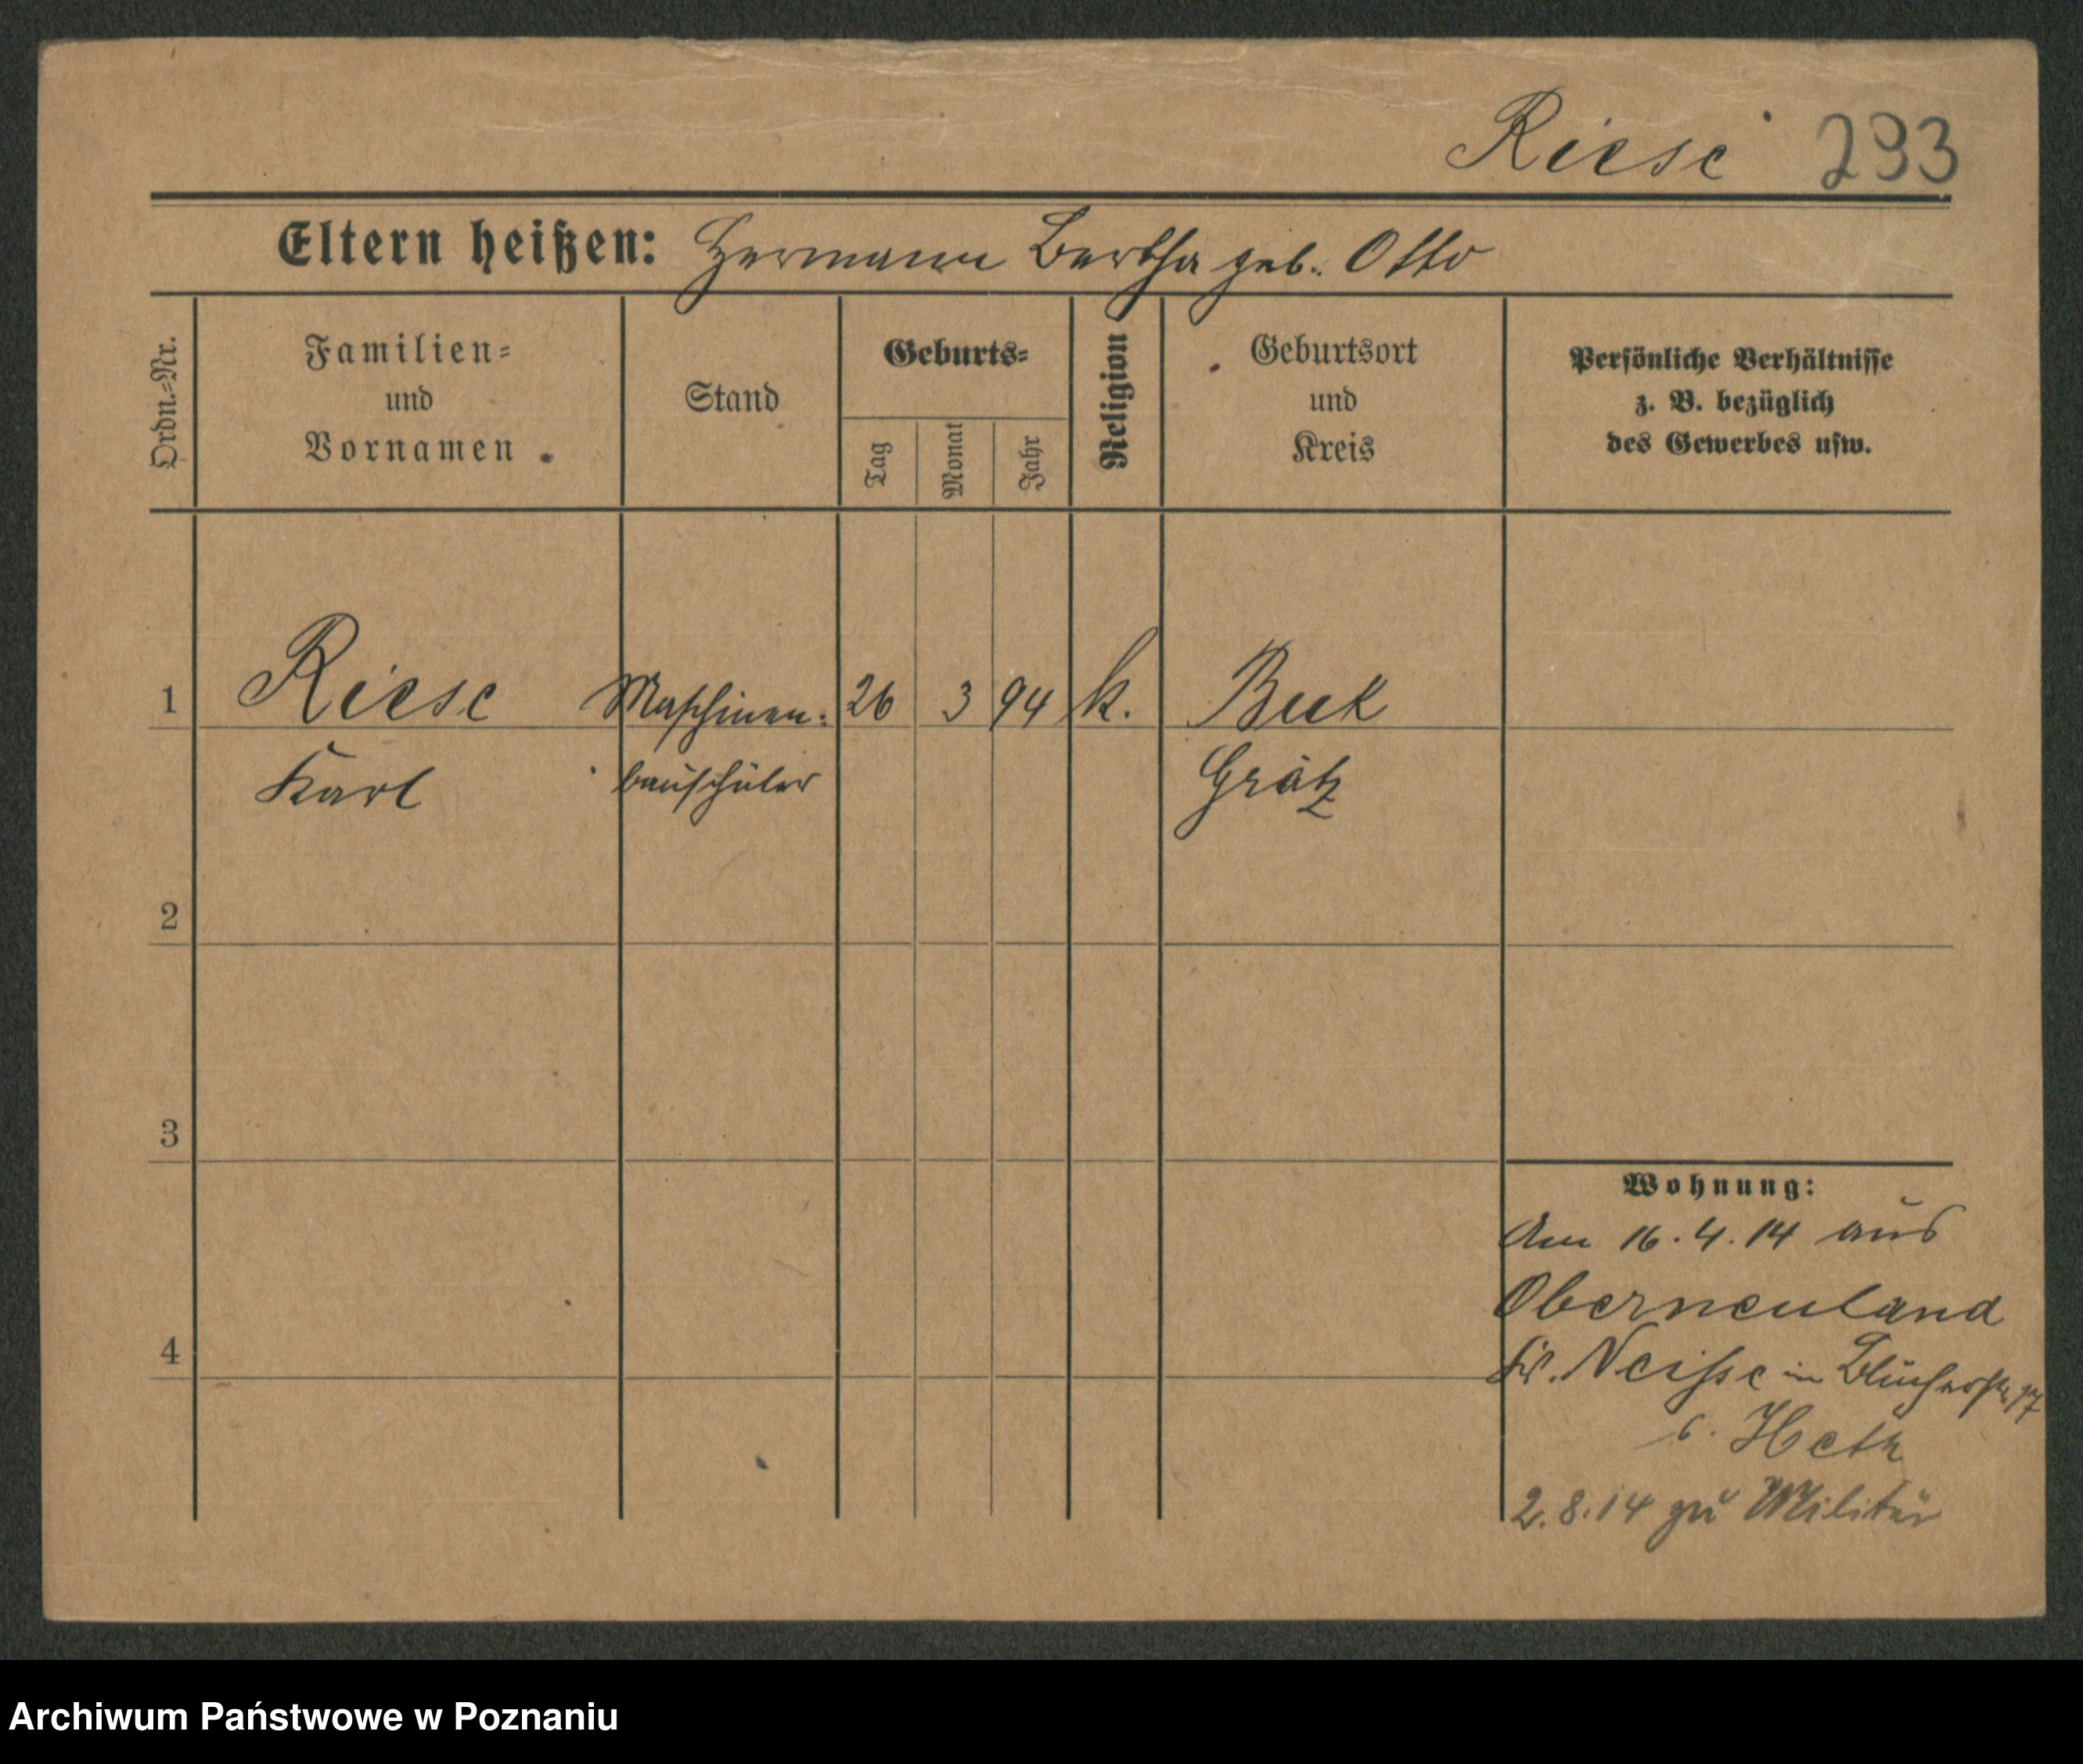 Riese 293
Eltern heißen: Hermann Bertha geb. Otto
Ordn.=Nr.
Familien=
und
Vornamen
Stand
Geburts=
Tag
Monat
Jahr
Religion
Geburtsort
und
Kreis
Persönliche Verhältnisse
z. B. bezüglich
des Gewerbes usw.
1 Riese Maschinen= 26 3 94 k. Buk
Karl bauschüler Grätz
2
3
4
Wohnung:
Am 16.4.14 aus
Oberneuland
Kr. Neisse in Blücherstr.
b.
2.8.14 zu Militär
Archiwum Państwowe w Poznaniu